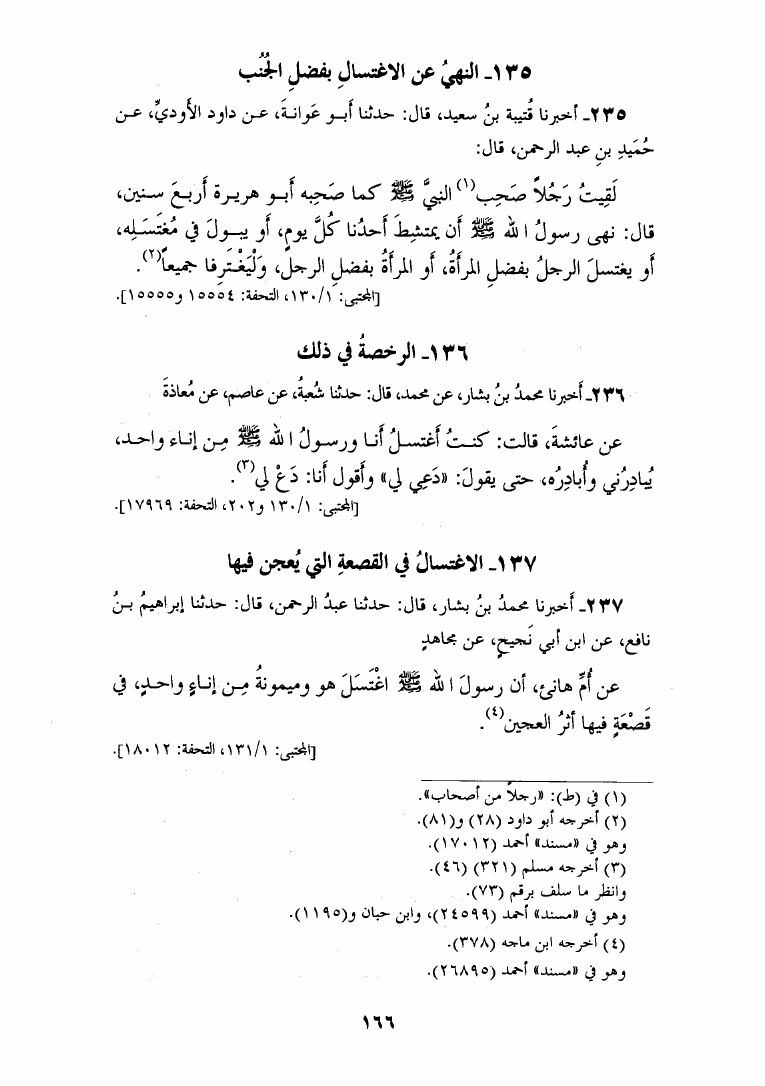 ١٣٥ـ النهيُ عن الاغتسالِ بفضلِ الجُنُب
٢٣٥ـ أخبرنا قُتيبة بنُ سعيد، قال: حدثنا أبو عَوانةَ، عن داود الأَوديِّ، عن
حُمَيدِ بنِ عبد الرحمن، قال:
لَقِيتُ رَجُلاً صَحِب(١) النبيَّ ﷺ كما صَحِبه أبو هريرة أربعَ سنين،
قال: نهى رسولُ الله ﷺ أن يمتشِطَ أحدُنا كُلَّ يومٍ، أو يبولَ في مُغتَسَلِه،
أو يغتسلَ الرجلُ بفضلِ المرأةُ، أو المرأةُ بفضلِ الرجلُ، وَلْيَغْتَرِفا جميعاً(٢).
[المجتبى: ١٣٠/١، التحفة: ١٥٥٥٤ و١٥٥٥٥].
١٣٦ـ الرخصةُ في ذلك
٢٣٦ـ أخبرنا محمدُ بنُ بشار، عن محمد، قال: حدثنا شُعبةُ، عن عاصم، عن مُعاذةَ
عن عائشةَ، قالت: كنتُ أَغتسلُ أنا ورسولُ الله ﷺ مِن إناء واحد،
يُبادِرُني وأُبادِرُه، حتى يقولَ: «دَعِي لي» وأقول أنا: دَعْ لي(٣).
[المجتبى: ١٣٠/١ و٢٠٢، التحفة: ١٧٩٦٩].
١٣٧ـ الاغتسالُ في القصعةِ التي يُعجن فيها
٢٣٧ـ أخبرنا محمدُ بنُ بشار، قال: حدثنا عبدُ الرحمن، قال: حدثنا إبراهيمُ بنُ
نافع، عن ابن أبي نَجيحٍ، عن مجاهدٍ
عن أُمِّ هانئ، أن رسولَ الله ﷺ اغْتَسَلَ هو وميمونةُ مِن إناءٍ واحدٍ، في
قَصْعَةٍ فيها أثرُ العجين(٤).
[المجتبى: ١٣١/١، التحفة: ١٨٠١٢].
(١) في (ط): «رجلاً من أصحاب».
(٢) أخرجه أبو داود (٢٨) و(٨١).
وهو في «مسند» أحمد (١٧٠١٢).
(٣) أخرجه مسلم (٣٢١) (٤٦).
وانظر ما سلف برقم (٧٣).
وهو في «مسند» أحمد (٢٤٥٩٩)، وابن حبان و(١١٩٥).
(٤) أخرجه ابن ماجه (٣٧٨).
وهو في «مسند» أحمد (٢٦٨٩٥).
١٦٦